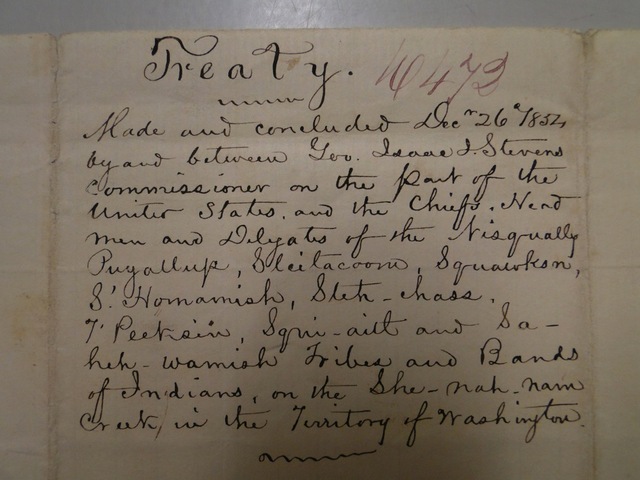 Treaty. 10473
Made and concluded Decr 26th 1854
by and between Gov. Isaac I. Stevens
Commissioner on the part of the
United States, and the Chiefs, Head
men and Delegates of the Nisqually
Puyallup, Steilacoom, Squawksin,
S'Homamish, Steh-chass,
T'Peeksin, Squi-aitl and Sa-
heh-wamish Tribes and Bands
of Indians, on the She-nah-nam
Creek, in the Territory of Washington.